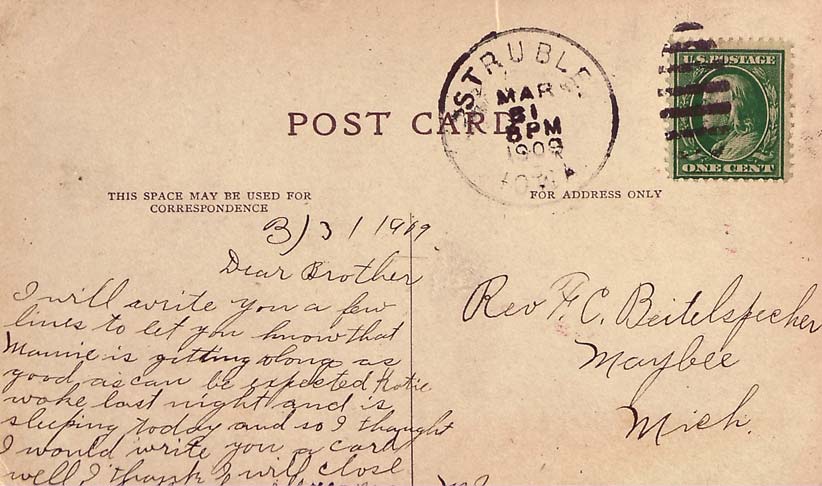 STRUBLE
MAR
31
5 PM
1909
IOWA
U.S. POSTAGE
ONE CENT
POST CARD
THIS SPACE MAY BE USED FOR
CORRESPONDENCE
FOR ADDRESS ONLY
3/31/1909
Dear Brother
I will write you a few
lines to let you know that
Mamie is getting along as
good as can be expected Katie
woke last night and is
sleeping today and so I thought
I would write you a card
well I thank I will close
Rev F. C. Beitelspecher
Maybee
Mich.